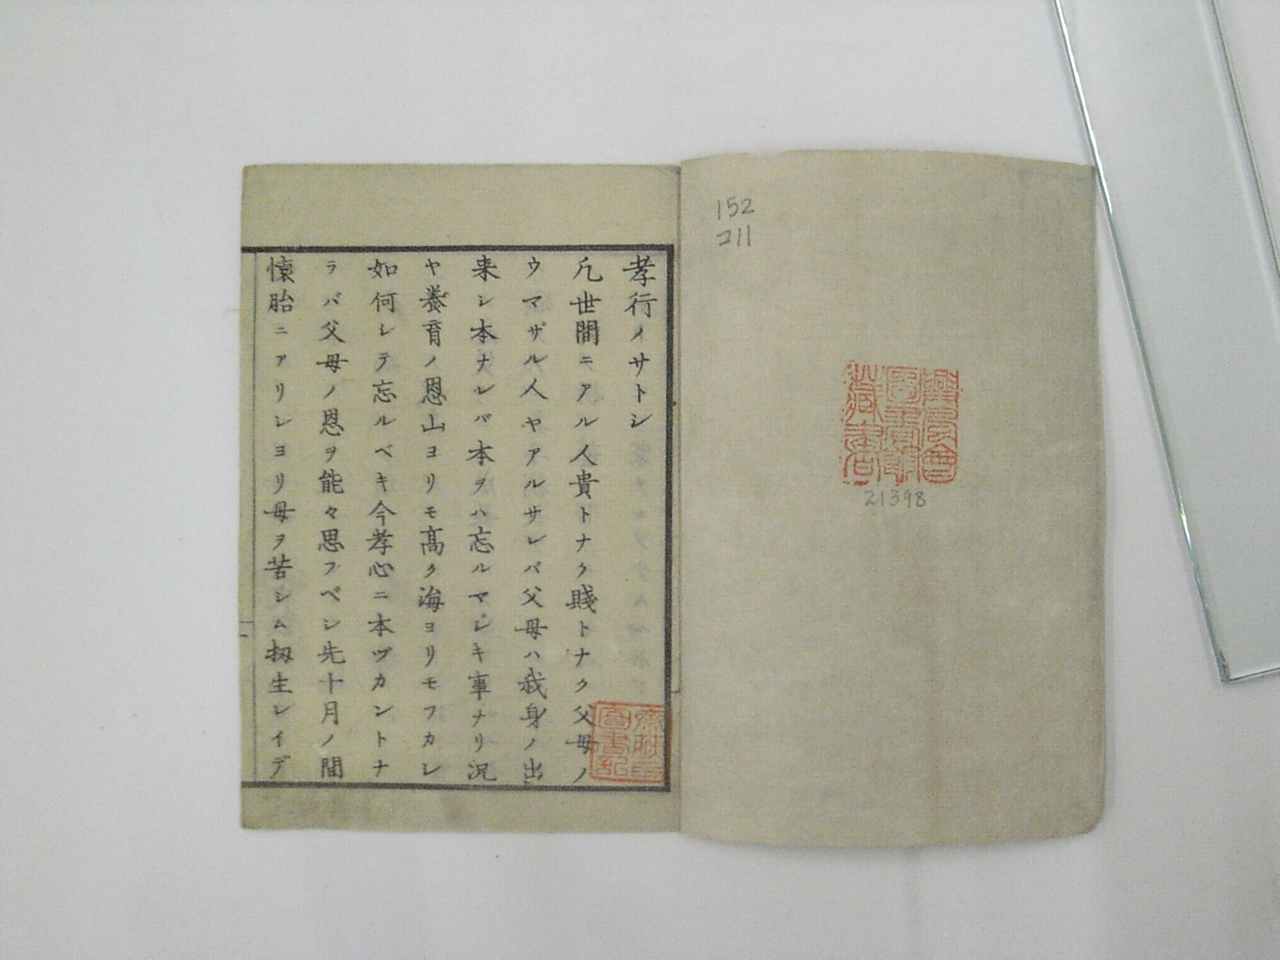 152
コ11
21398
孝行ノサトシ
凡世間ニアル人貴トナク賤トナク父母ノ
ウマザル人ヤアルサレバ父母ハ我身ノ出
来シ本ナレバ本ヲハ忘ルマジキ事ナリ况
ヤ養育ノ恩山ヨリモ高ク海ヨリモフカシ
如何レテ忘ルベキ今孝心ニ本ヅカントナ
ラバ父母ノ恩ヲ能々思フベシ先十月ノ間
懐胎ニアリシヨリ母ヲ苦シム扨生レイデ